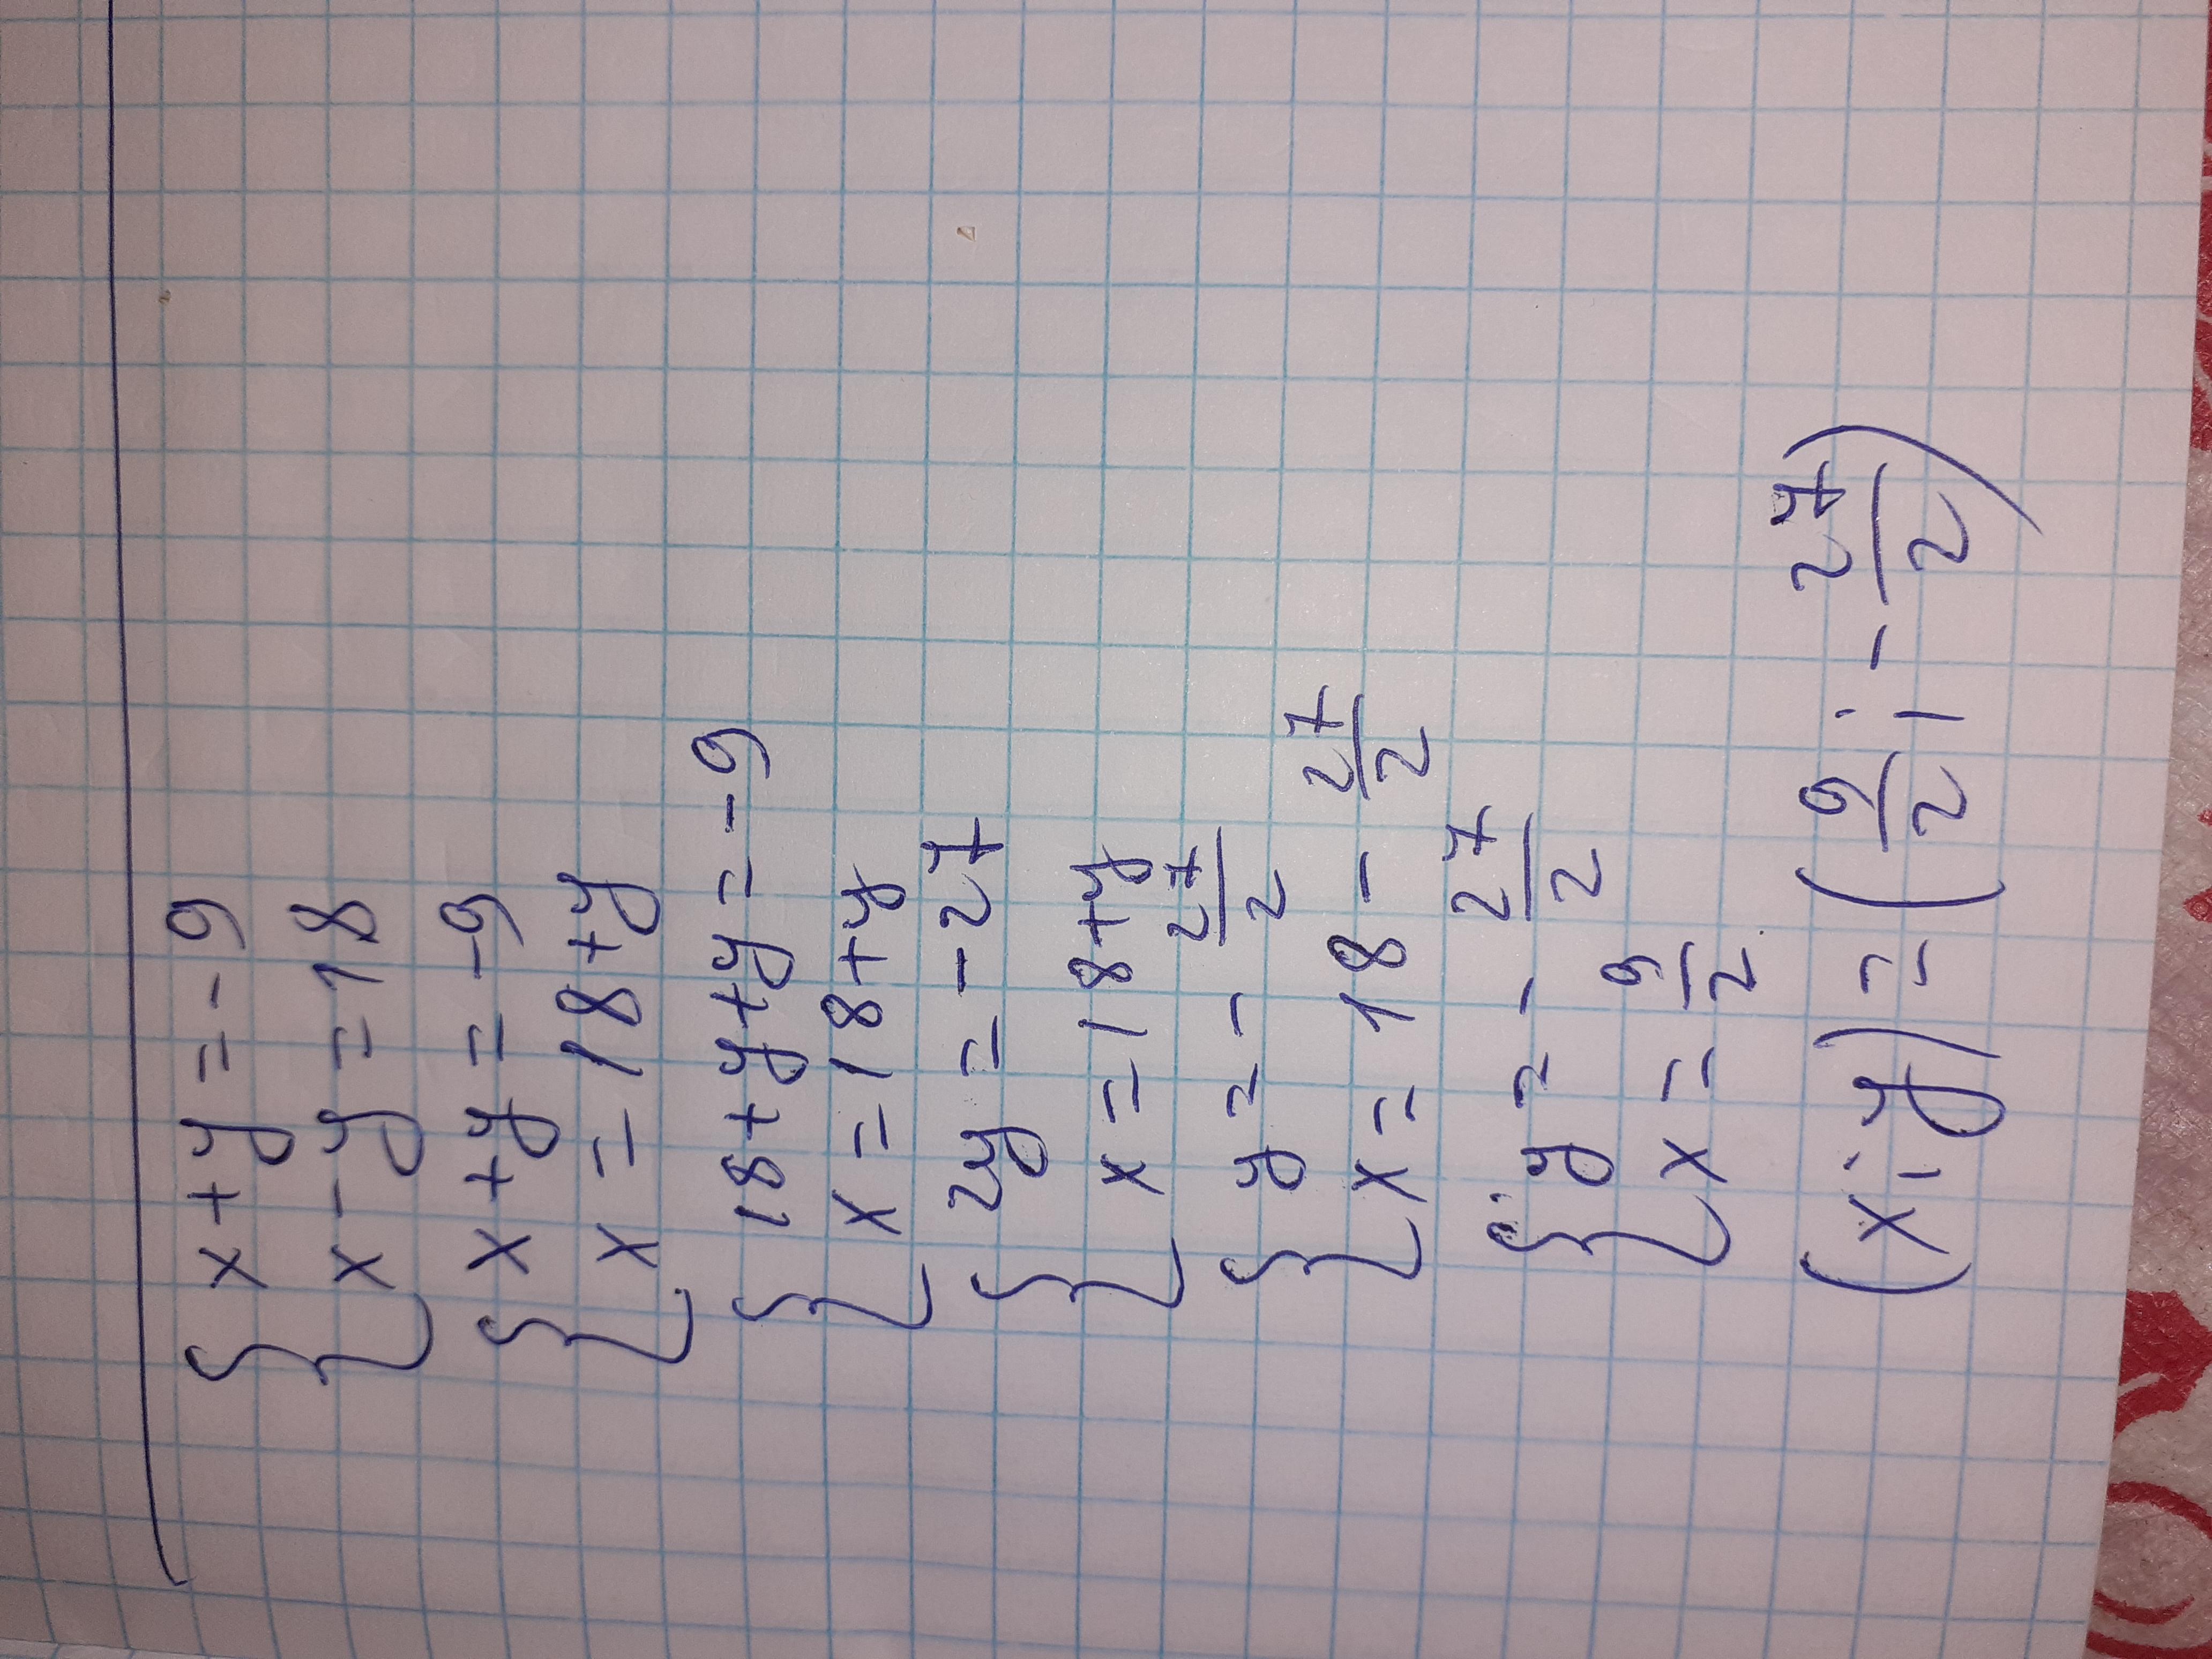 { x+y=-9
x-y=18
{ x+y=-9
x=18+y
{ 18+y+y=-9
x=18+y
{ 2y=-27
x=18+y
{ y=-27/2
x=18-27/2
{ y=-27/2
x=9/2
(x;y)=(9/2;-27/2)